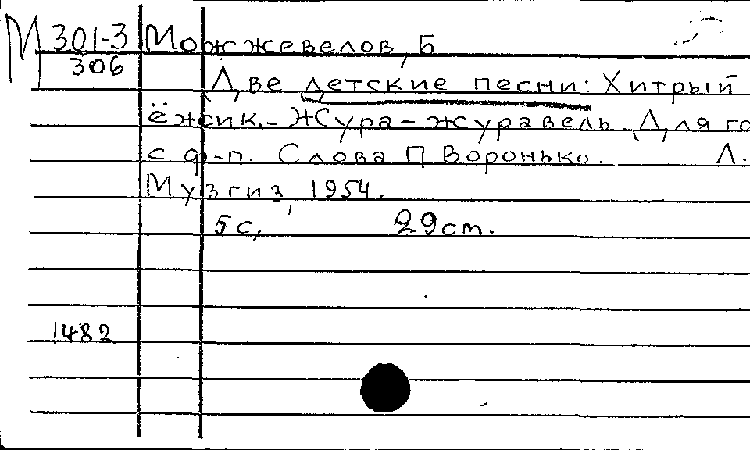 М 301-3 Можжевелов, Б
306
Две детские песни: Хитрый
ёжик. - Жура - журавель. Для го
с ф-п. Слова П Воронько. Л.
Музгиз, 1954.
5с, 29ст.
1482